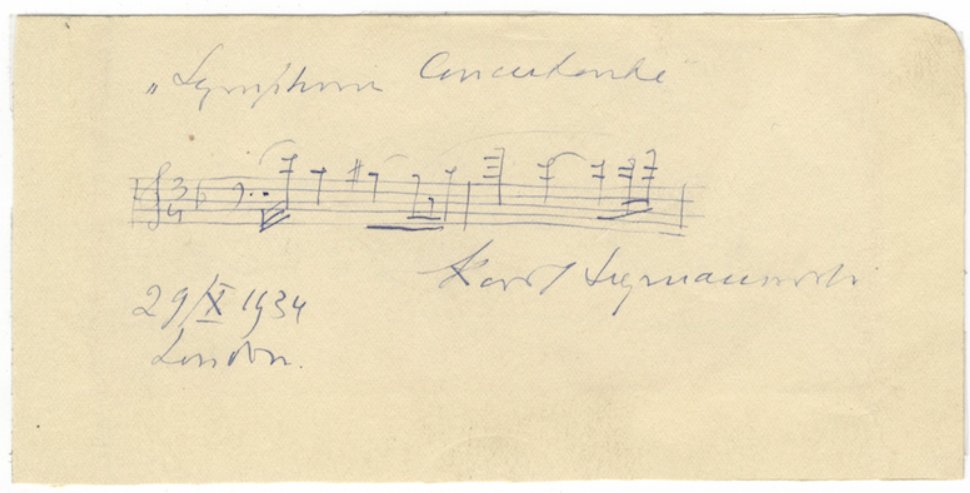 „Symphonie Concertante"
3
4
Karol Szymanowski
29/X 1934
London.